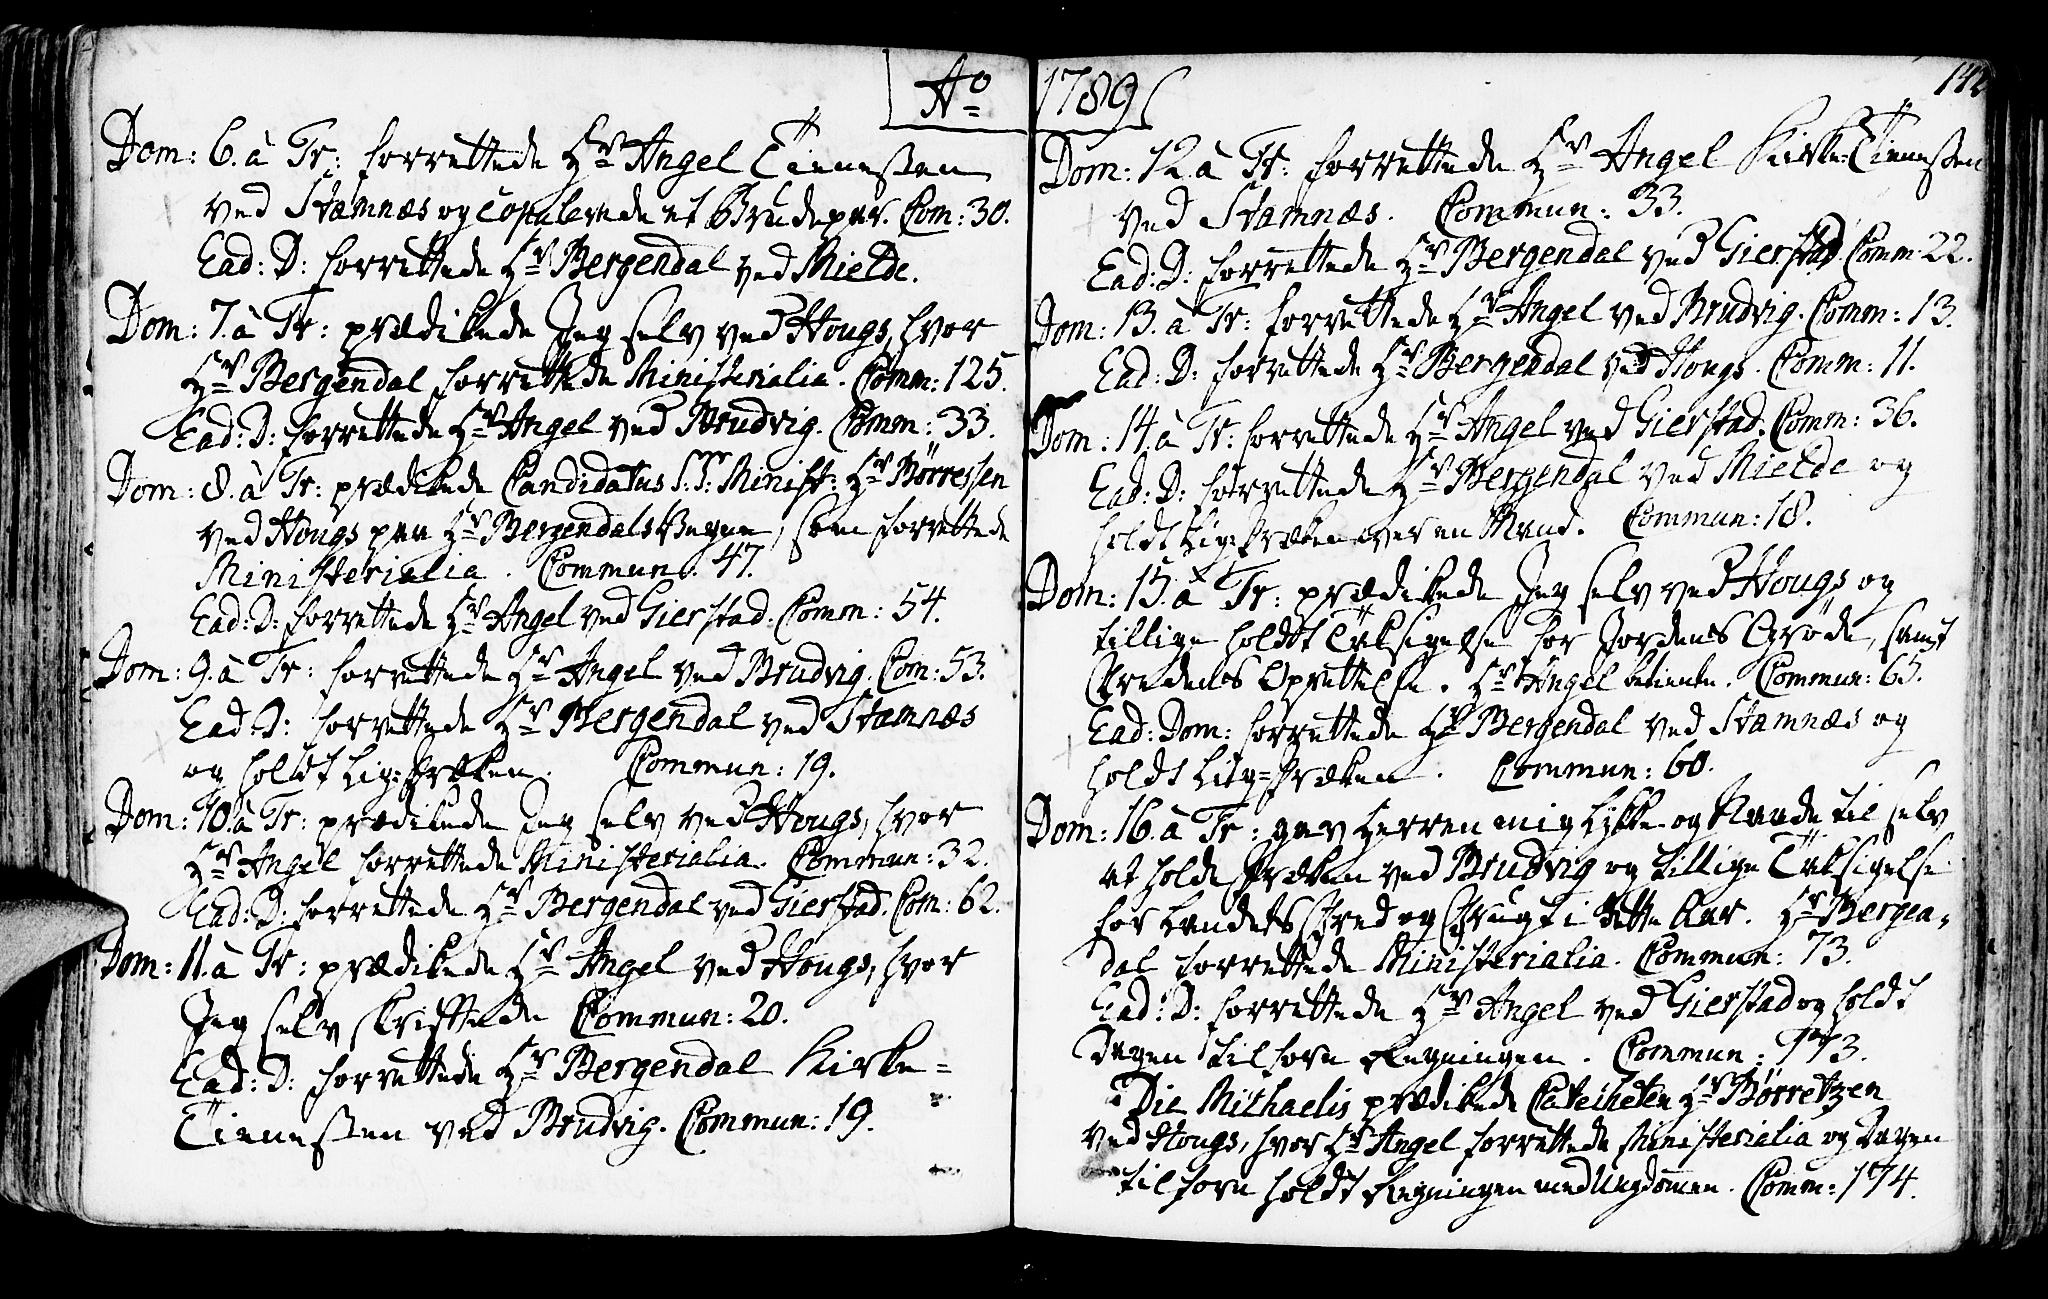 Aº 1789
142
Dom: 6. à Tr: forrettede Hr Angel Tienesten
ved Stamnæs og copulerede et Brudepar. Com: 30.
Ead: D: forrettede Hr Bergendal ved Mielde.
Dom: 7. à Tr: prædikede Jeg selv ved Hougs, hvor
Hr Bergendal forrettede Ministerialia. Comm: 125.
Ead: D: forrettede Hr Angel ved Brudvig. Comm: 33.
Dom: 8. à Tr: prædikede Candidatus S.S. Minist: Hr Børressen
ved Hougs paa Hr Bergendals Vegne, som forrettede
Ministerialia. Commun: 47.
Ead: D: forrettede Hr Angel ved Gierstad. Comm: 54.
Dom: 9. à Tr: forrettede Hr Angel ved Brudvig. Com: 53.
Ead: D: forrettede Hr Bergendal ved Stamnæs
og holdt Lig-Præken. Commun: 19.
Dom: 10. à Tr: prædikede Jeg selv ved Hougs, hvor
Hr Angel forrettede Ministerialia. Commun: 32.
Ead: D: forrettede Hr Bergendal ved Gierstad. Com: 62.
Dom: 11. à Tr: prædikede Hr Angel ved Hougs, hvor
Jeg selv skriftede Commun: 20.
Ead: D: forrettede Hr Bergendal Kirke-
Tienesten ved Brudvig. Commun: 19.
Dom: 12. à Tr: forrettede Hr Angel Kirke-Tienesten
ved Stamnæs. Commun: 33.
Ead: D: forrettede Hr Bergendal ved Gierstad. Comm: 22.
Dom: 13. à Tr: forrettede Hr Angel ved Brudvig. Comm: 13.
Ead: D: forrettede Hr Bergendal ved Hougs. Comm: 11.
Dom: 14. à Tr: forrettede Hr Angel ved Gierstad. Comm: 36.
Ead: D: forrettede Hr Bergendal ved Mielde og
holdt Lig-Præken over en Mand. Commun: 18.
Dom: 15. à Tr: prædikede Jeg selv ved Hougs og
tillige holdt Taksigelse for Jordens Grøde, samt
Fredens Oprettelse. Hr Angel betiente. Commun: 65.
Ead: Dom: forrettede Hr Bergendal ved Stamnæs og
holdt Liig-Præken. Commun: 60.
Dom: 16. à Tr: gav Herren mig Lykke og Naade til selv
at holde Præken ved Brudvig og tillige Taksigelse
for Landets Fred og Frugt i dette Aar. Hr Bergen-
dal forrettede Ministerialia. Commun: 73.
Ead: D: forrettede Hr Angel ved Gierstad og holdt
Dagen tilforn Læsningen. Commun: 173.
Die Michaelis prædikede Catecheten Hr Børretzen
ved Hougs, hvor Hr Angel forrettede Ministerialia og Dagen
tilforn holdt Læsningen med Ungdommen. Comm: 174.